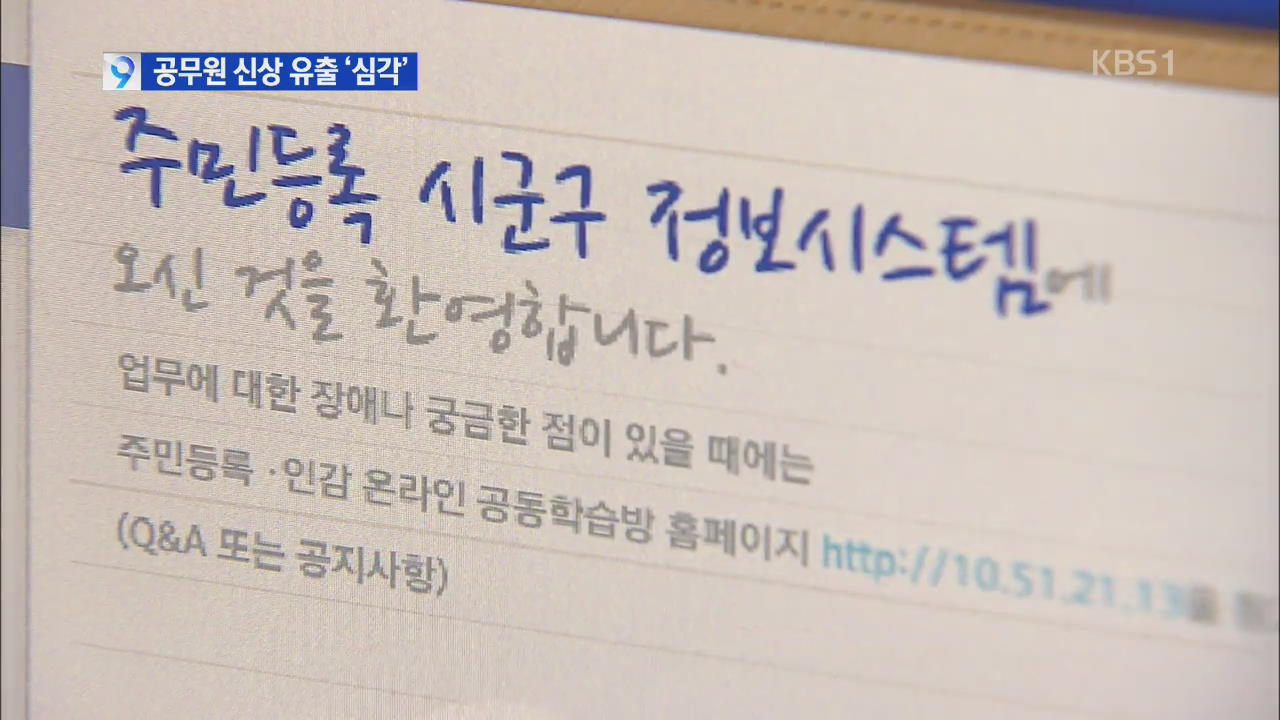 9 공무원 신상 유출 ‘심각’
KBS1
주민등록 시군구 정보시스템에
오신 것을 환영합니다.
업무에 대한 장애나 궁금한 점이 있을 때에는
주민등록·인감 온라인 공동학습방 홈페이지 http://10.51.21.13을
(Q&A 또는 공지사항)